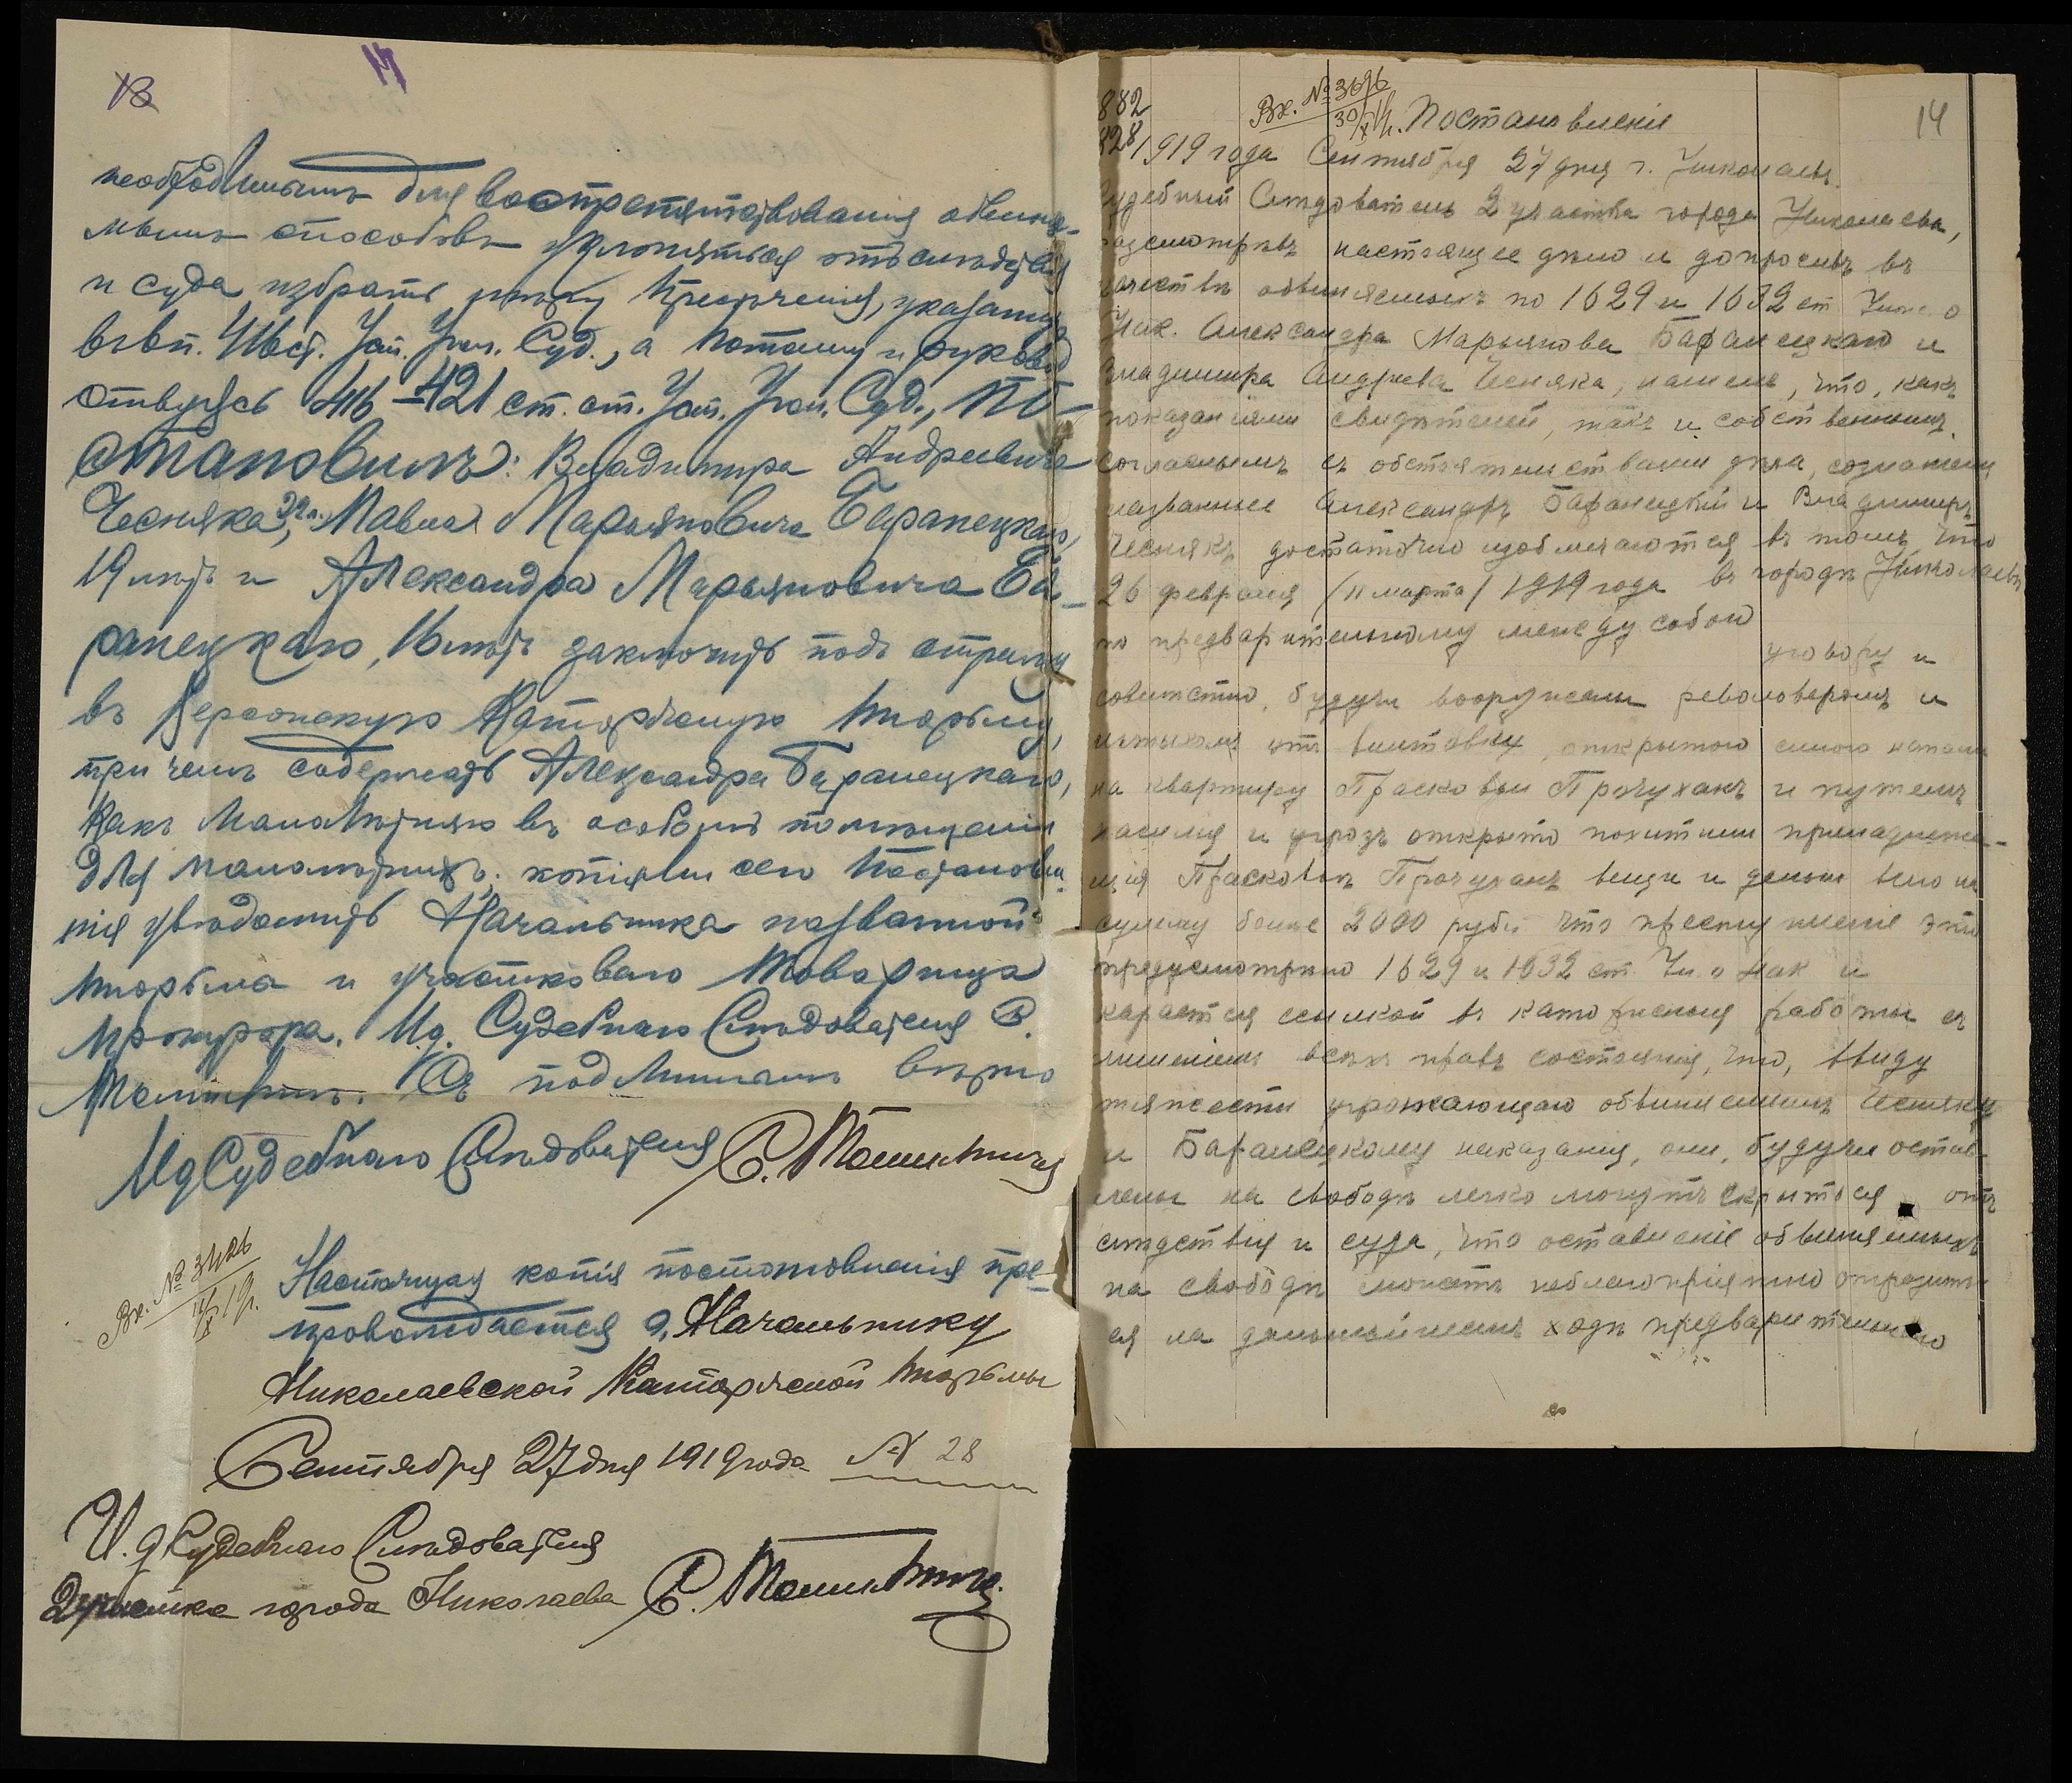 13
14
необходимымъ для воспрепятствованія обвиня-
мымъ способовъ уклоняться отъ слѣдствія
и суда избрать мѣру пресѣченія, указанную
въ 6 п. 416 ст. Уст. Угол. Суд., а потому и руковод
ствуясь 416-421 ст. ст. Уст. Угол. Суд., По-
становилъ: Владимира Андреевича
Чесняка, 22 л., Павла Марьяновича Баранецкаго,
19 лѣтъ и Александра Марьяновича Ба-
ранецкаго, 16 лѣтъ заключить подъ стражу
въ Херсонскую Каторжную тюрьму,
при чемъ содержать Александра Баранецкаго,
какъ малолѣтняго въ особомъ помѣщеніи
для малолѣтнихъ; копіями сего постановле
нія увѣдомить Начальника названной
тюрьмы и участковаго Товарища
прокурора. И.д. Судебнаго Слѣдователя С.
Съ подлиннымъ вѣрно
И д Судебнаго Слѣдователя С.
Вх. № 3426
11/X 19 г.
Настоящая копія постановленія пре-
провождается г. Начальнику
Николаевской Каторжной тюрьмы
Сентября 27 дня 1919 года № 28
И. д Судебнаго Слѣдователя
2 участка города Николаева С.
882
828
Вх. № 3696
30/X 19 г.
14
Постановленіе
1919 года Сентября 27 дня г. Николаевъ.
Судебный Слѣдователь 2 участка города Николаева,
разсмотрѣвъ настоящее дѣло и допросивъ въ
качествѣ обвиняемыхъ по 1629 и 1632 ст Улож. о
Нак. Александра Марьянова Баранецкаго и
Владимира Андреева Чесняка, нашелъ, что, какъ
показаніями свидѣтелей, такъ и собственнымъ,
согласнымъ съ обстоятельствами дѣла, сознаніемъ
названные Александръ Баранецкій и Владимиръ
Чеснякъ достаточно изобличаются въ томъ, что
26 февраля /11 марта/ 1919 года въ городѣ Николаевѣ
по предварительному между собою
уговору и
совмѣстно, будучи вооружены револьверомъ и
винтовки, открытою силою напали
на квартиру Прасковьи Прочуханъ и путемъ
насилія и угрозъ открыто похитили принадлежа-
щія Прасковьѣ Прочуханъ вещи и деньги всего на
сумму болѣе 2000 рубл что преступленіе это
предусмотрѣно 1629 и 1632 ст Ул. о Нак и
карается ссылкой въ каторжныя работы съ
лишеніемъ всѣхъ правъ состоянія, что, ввиду
тяжести угрожающаго обвиняемымъ Чесняку
и Баранецкому наказанія, они, будучи остав-
лены на свободѣ легко могутъ скрыться отъ
слѣдствія и суда, что оставленіе обвиняемыхъ
на свободѣ можетъ неблагопріятно отразить
ся на дальнѣйшемъ ходѣ предварительнаго